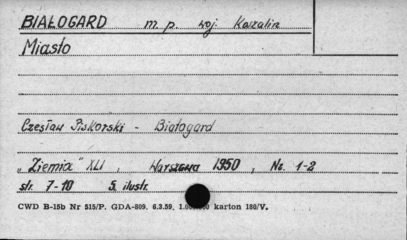 BIAŁOGARD m. p. woj. Koszalin
Miasto
Czesław Piskorski - Białogard
"Ziemia" XLI, Warszawa 1950, Nr. 1-2
str. 7-10 5. ilustr.
CWD B-15b Nr 515/P. GDA-809. 6.3.59. karton 180/V.